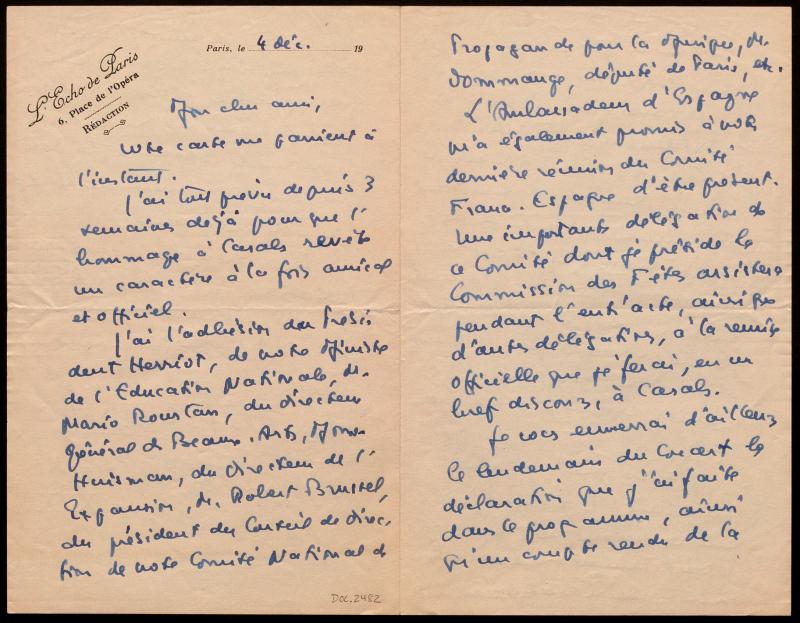 L'Echo de Paris
6, Place de l'Opéra
RÉDACTION
Paris, le 4 déc. 19
Mon cher ami,
Votre carte me parvient à
l'instant.
J'ai tout prévu depuis 3
semaines déjà pour que l'
hommage à Casals revête
un caractère à la fois amical
et officiel.
J'ai l'adhésion du Prési
dent Herriot, de notre Ministre
de l'Education Nationale, M.
Mario Roustan, du directeur
général ds Beaux-Arts,
Huisman, du Directeur de l'
Expansion, M. Robert Brussel,
du président du Conseil de direc-
tion de notre Comité National d
Doc. 2482
Propagande pour la Musique, M.
Dommange, député de Paris, etc.
L'Ambassadeur d'Espagne
m'a également promis à notre
dernière réunion du Comité
France-Espagne d'être présent.
Une importante délégation de
ce Comité dont je préside la
Commission des Fêtes assistera
pendant l'entr'acte, ainsi que
d'autres délégations, à la remise
officielle que je ferai, en un
bref discours, à Casals.
Je vous enverrai d'ailleurs
le lendemain du Concert la
déclaration que j'ai faite
dans le programme, ainsi
qu'un compte rendu de la